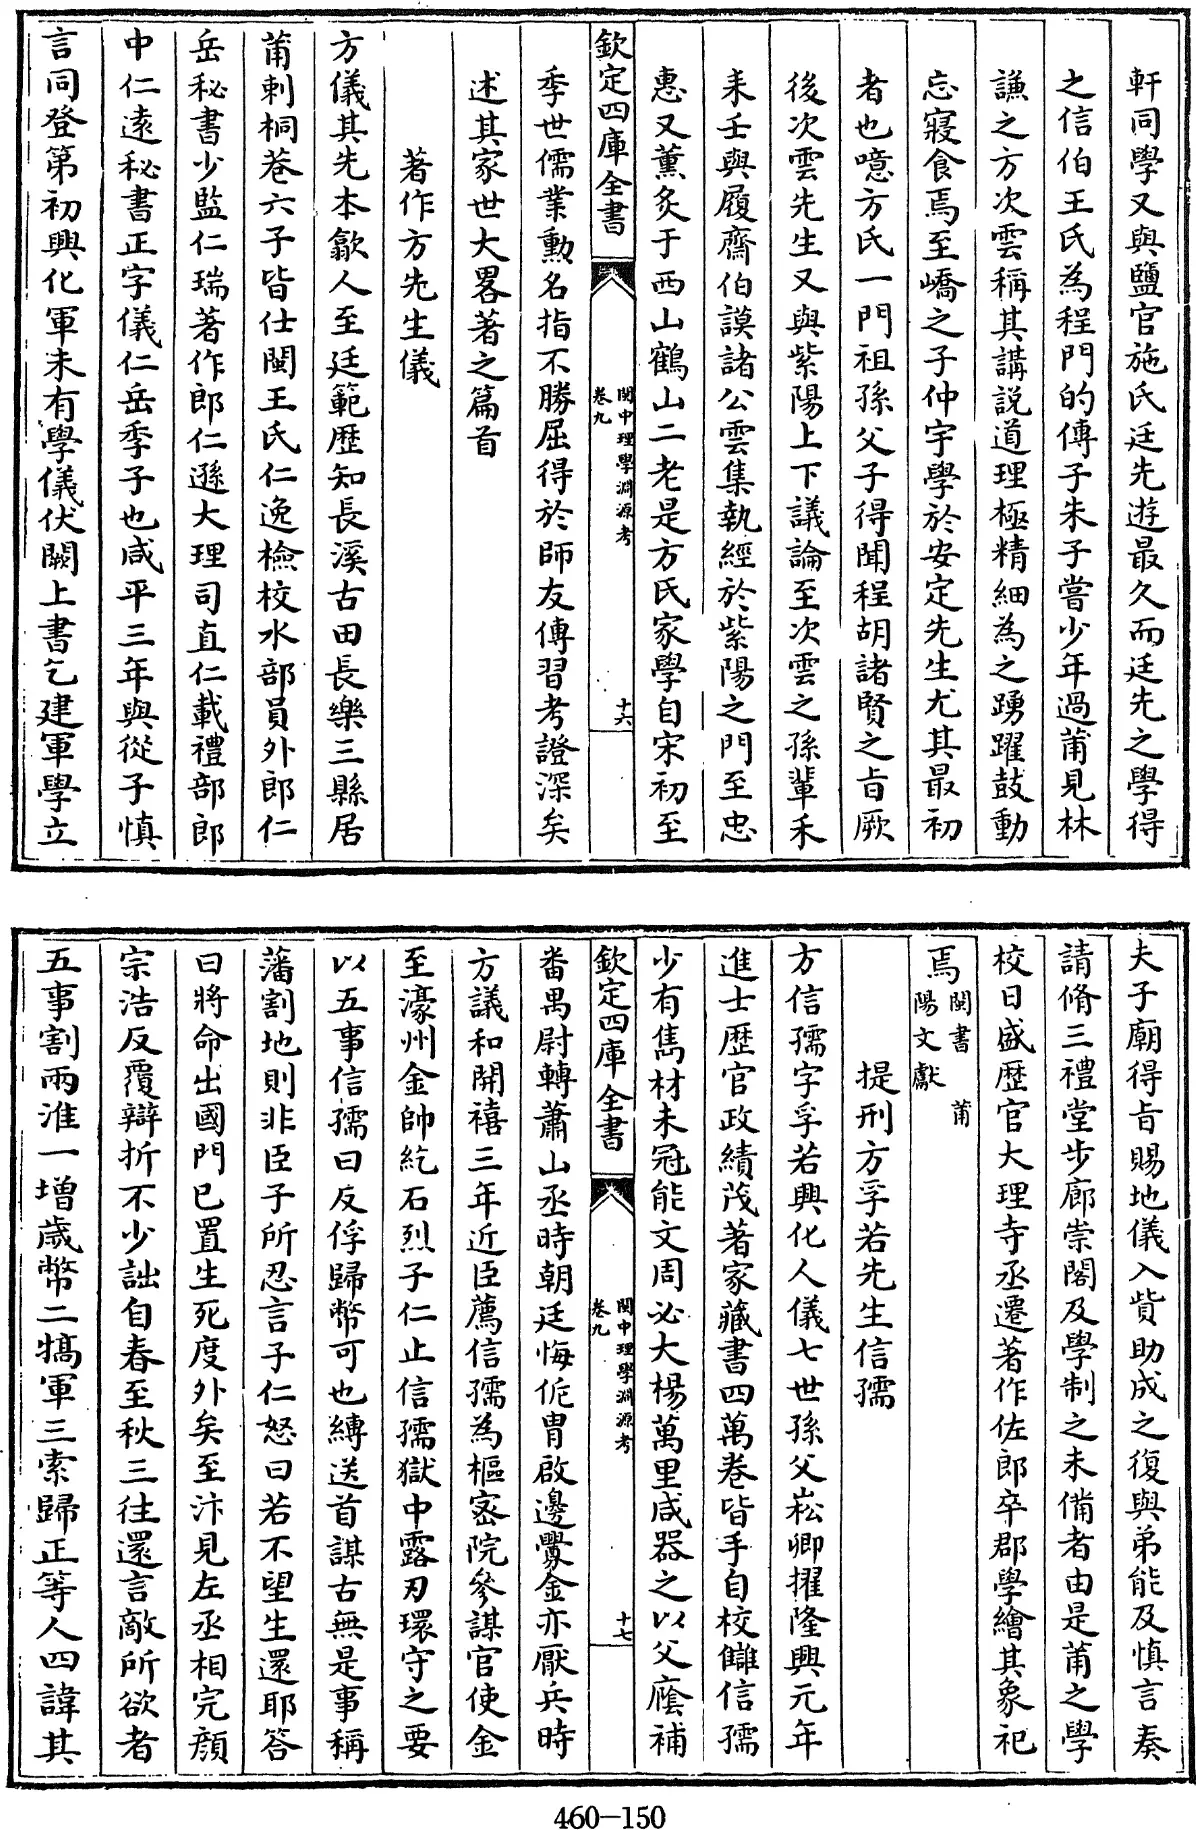 軒同學又與鹽官施氏廷先遊最久而廷先之學得
之信伯王氏為程門的傳子朱子嘗少年過莆見林
謙之方次雲稱其講説道理極精細為之踴躍鼓動
忘寢食焉至嶠之子仲宇學於安定先生尤其最初
者也噫方氏一門祖孫父子得聞程胡諸賢之旨厥
後次雲先生又與紫陽上下議論至次雲之孫輩禾
耒壬與履齋伯謨諸公雲集執經於紫陽之門至忠
惠又薰炙于西山鶴山二老是方氏家學自宋初至
欽定四庫全書
閩中理學淵源考
卷九
十六
季世儒業勳名指不勝屈得於師友傳習考證深矣
述其家世大畧著之篇首
著作方先生儀
方儀其先本歙人至廷範歴知長溪古田長樂三縣居
莆刺桐巷六子皆仕閩王氏仁逸檢校水部員外郎仁
岳秘書少監仁瑞著作郎仁遜大理司直仁載禮部郎
中仁逺秘書正字儀仁岳季子也咸平三年與從子慎
言同登第初興化軍未有學儀伏闕上書乞建軍學立
夫子廟得旨賜地儀入貲助成之復與弟能及慎言奏
請脩三禮堂步廊崇閣及學制之未備者由是莆之學
校日盛歴官大理寺丞遷著作佐郎卒郡學繪其象祀
焉閩書 莆
陽文獻
提刑方孚若先生信孺
方信孺字孚若興化人儀七世孫父崧卿擢隆興元年
進士歴官政績茂著家藏書四萬巻皆手自校讎信孺
少有雋材未冠能文周必大楊萬里咸器之以父廕補
欽定四庫全書
閩中理學淵源考
卷九
十七
番禺尉轉蕭山丞時朝廷悔侂胄啟邊釁金亦厭兵時
方議和開禧三年近臣薦信孺為樞宻院參謀官使金
至濠州金帥紇石烈子仁止信孺獄中露刃環守之要
以五事信孺曰反俘歸幣可也縛送首謀古無是事稱
藩割地則非臣子所忍言子仁怒曰若不望生還耶答
曰將命出國門已置生死度外矣至汴見左丞相完顔
宗浩反覆辯折不少詘自春至秋三往還言敵所欲者
五事割兩淮一增歲幣二犒軍三索歸正等人四諱其
460-150